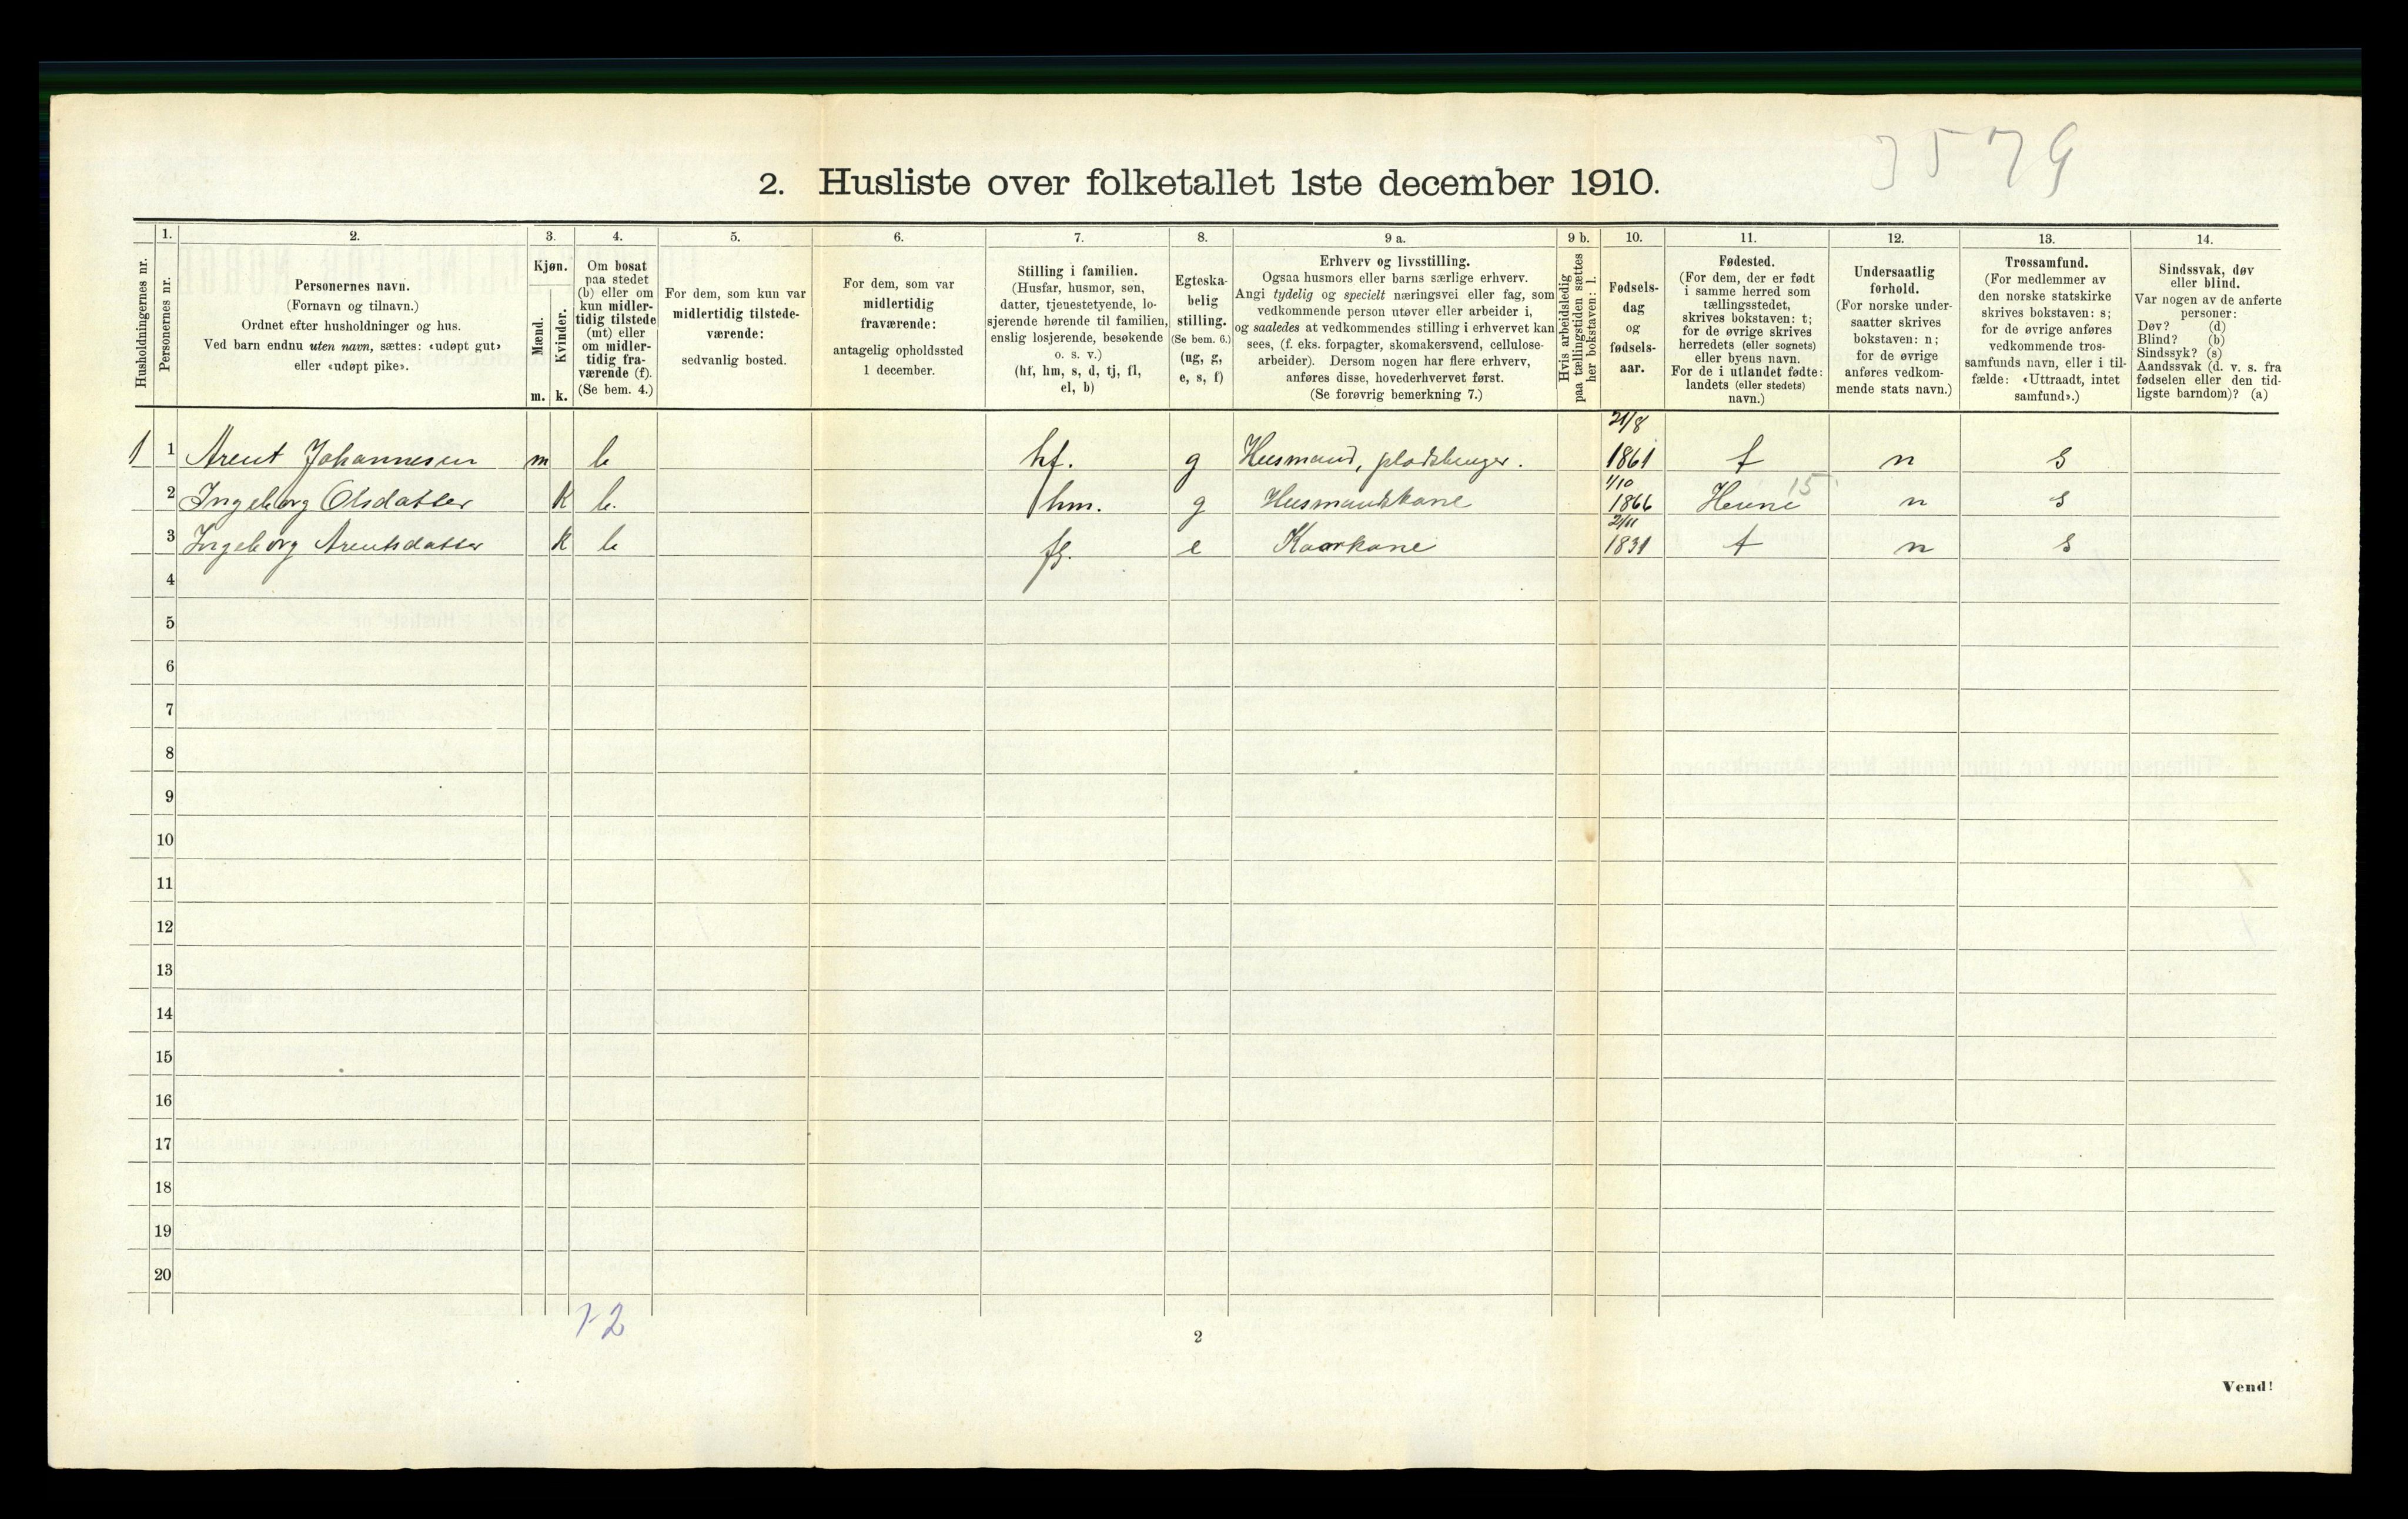 3579
2. Husliste over folketallet 1ste december 1910.
Husholdningernes nr.
1.
Personernes nr.
2.
Personernes navn.
(Fornavn og tilnavn.)
Ordnet efter husholdninger og hus.
Ved barn endnu uten navn, sættes: «udøpt gut»
eller «udøpt pike».
3.
Kjøn.
Mænd.
Kvinder.
m. k.
4.
Om bosat
paa stedet
(b) eller om
kun midler-
tidig tilstede
(mt) eller
om midler-
tidig fra-
værende (f).
(Se bem. 4.)
5.
For dem, som kun var
midlertidig tilstede-
værende:
sedvanlig bosted.
6.
For dem, som var
midlertidig
fraværende:
antagelig opholdssted
1 december.
7.
Stilling i familien.
(Husfar, husmor, søn,
datter, tjenestetyende, lo-
sjerende hørende til familien,
enslig losjerende, besøkende
o. s. v.)
(hf, hm, s, d, tj, fl,
el, b)
8.
Egteska-
belig
stilling.
(Se bem. 6.)
(ug, g,
e, s, f)
9 a.
Erhverv og livsstilling.
Ogsaa husmors eller barns særlige erhverv.
Angi tydelig og specielt næringsvei eller fag, som
vedkommende person utøver eller arbeider i,
og saaledes at vedkommendes stilling i erhvervet kan
sees, (f. eks. forpagter, skomakersvend, cellulose-
arbeider). Dersom nogen har flere erhverv,
anføres disse, hovederhvervet først.
(Se forøvrig bemerkning 7.)
9 b.
Hvis arbeidsledig
paa tællingstiden sættes
her bokstaven: l.
10.
Fødsels-
dag
og
fødsels-
aar.
11.
Fødested.
(For dem, der er født
i samme herred som
tællingsstedet,
skrives bokstaven: t;
for de øvrige skrives
herredets (eller sognets)
eller byens navn.
For de i utlandet fødte:
landets (eller stedets)
navn.)
12.
Undersaatlig
forhold.
(For norske under-
saatter skrives
bokstaven: n;
for de øvrige
anføres vedkom-
mende stats navn.)
13.
Trossamfund.
(For medlemmer av
den norske statskirke
skrives bokstaven: s;
for de øvrige anføres
vedkommende tros-
samfunds navn, eller i til-
fælde: «Uttraadt, intet
samfund».)
14.
Sindssvak, døv
eller blind.
Var nogen av de anførte
personer:
Døv? (d)
Blind? (b)
Sindssyk? (s)
Aandssvak (d. v. s. fra
fødselen eller den tid-
ligste barndom)? (a)
1 1 Arent Johannesen m b hf. g Husmand, pladsbruger. 21/8 1861 t n s
2 Ingeborg Olsdatter k b. hm. g Husmandskone 1/10 1866 Hevne 15 n s
3 Ingeborg Arentsdatter k b fl. e Kaarkone 2/11 1831 t n s
4
5
6
7
8
9
10
11
12
13
14
15
16
17
18
19
20
1-2
2
Vend!